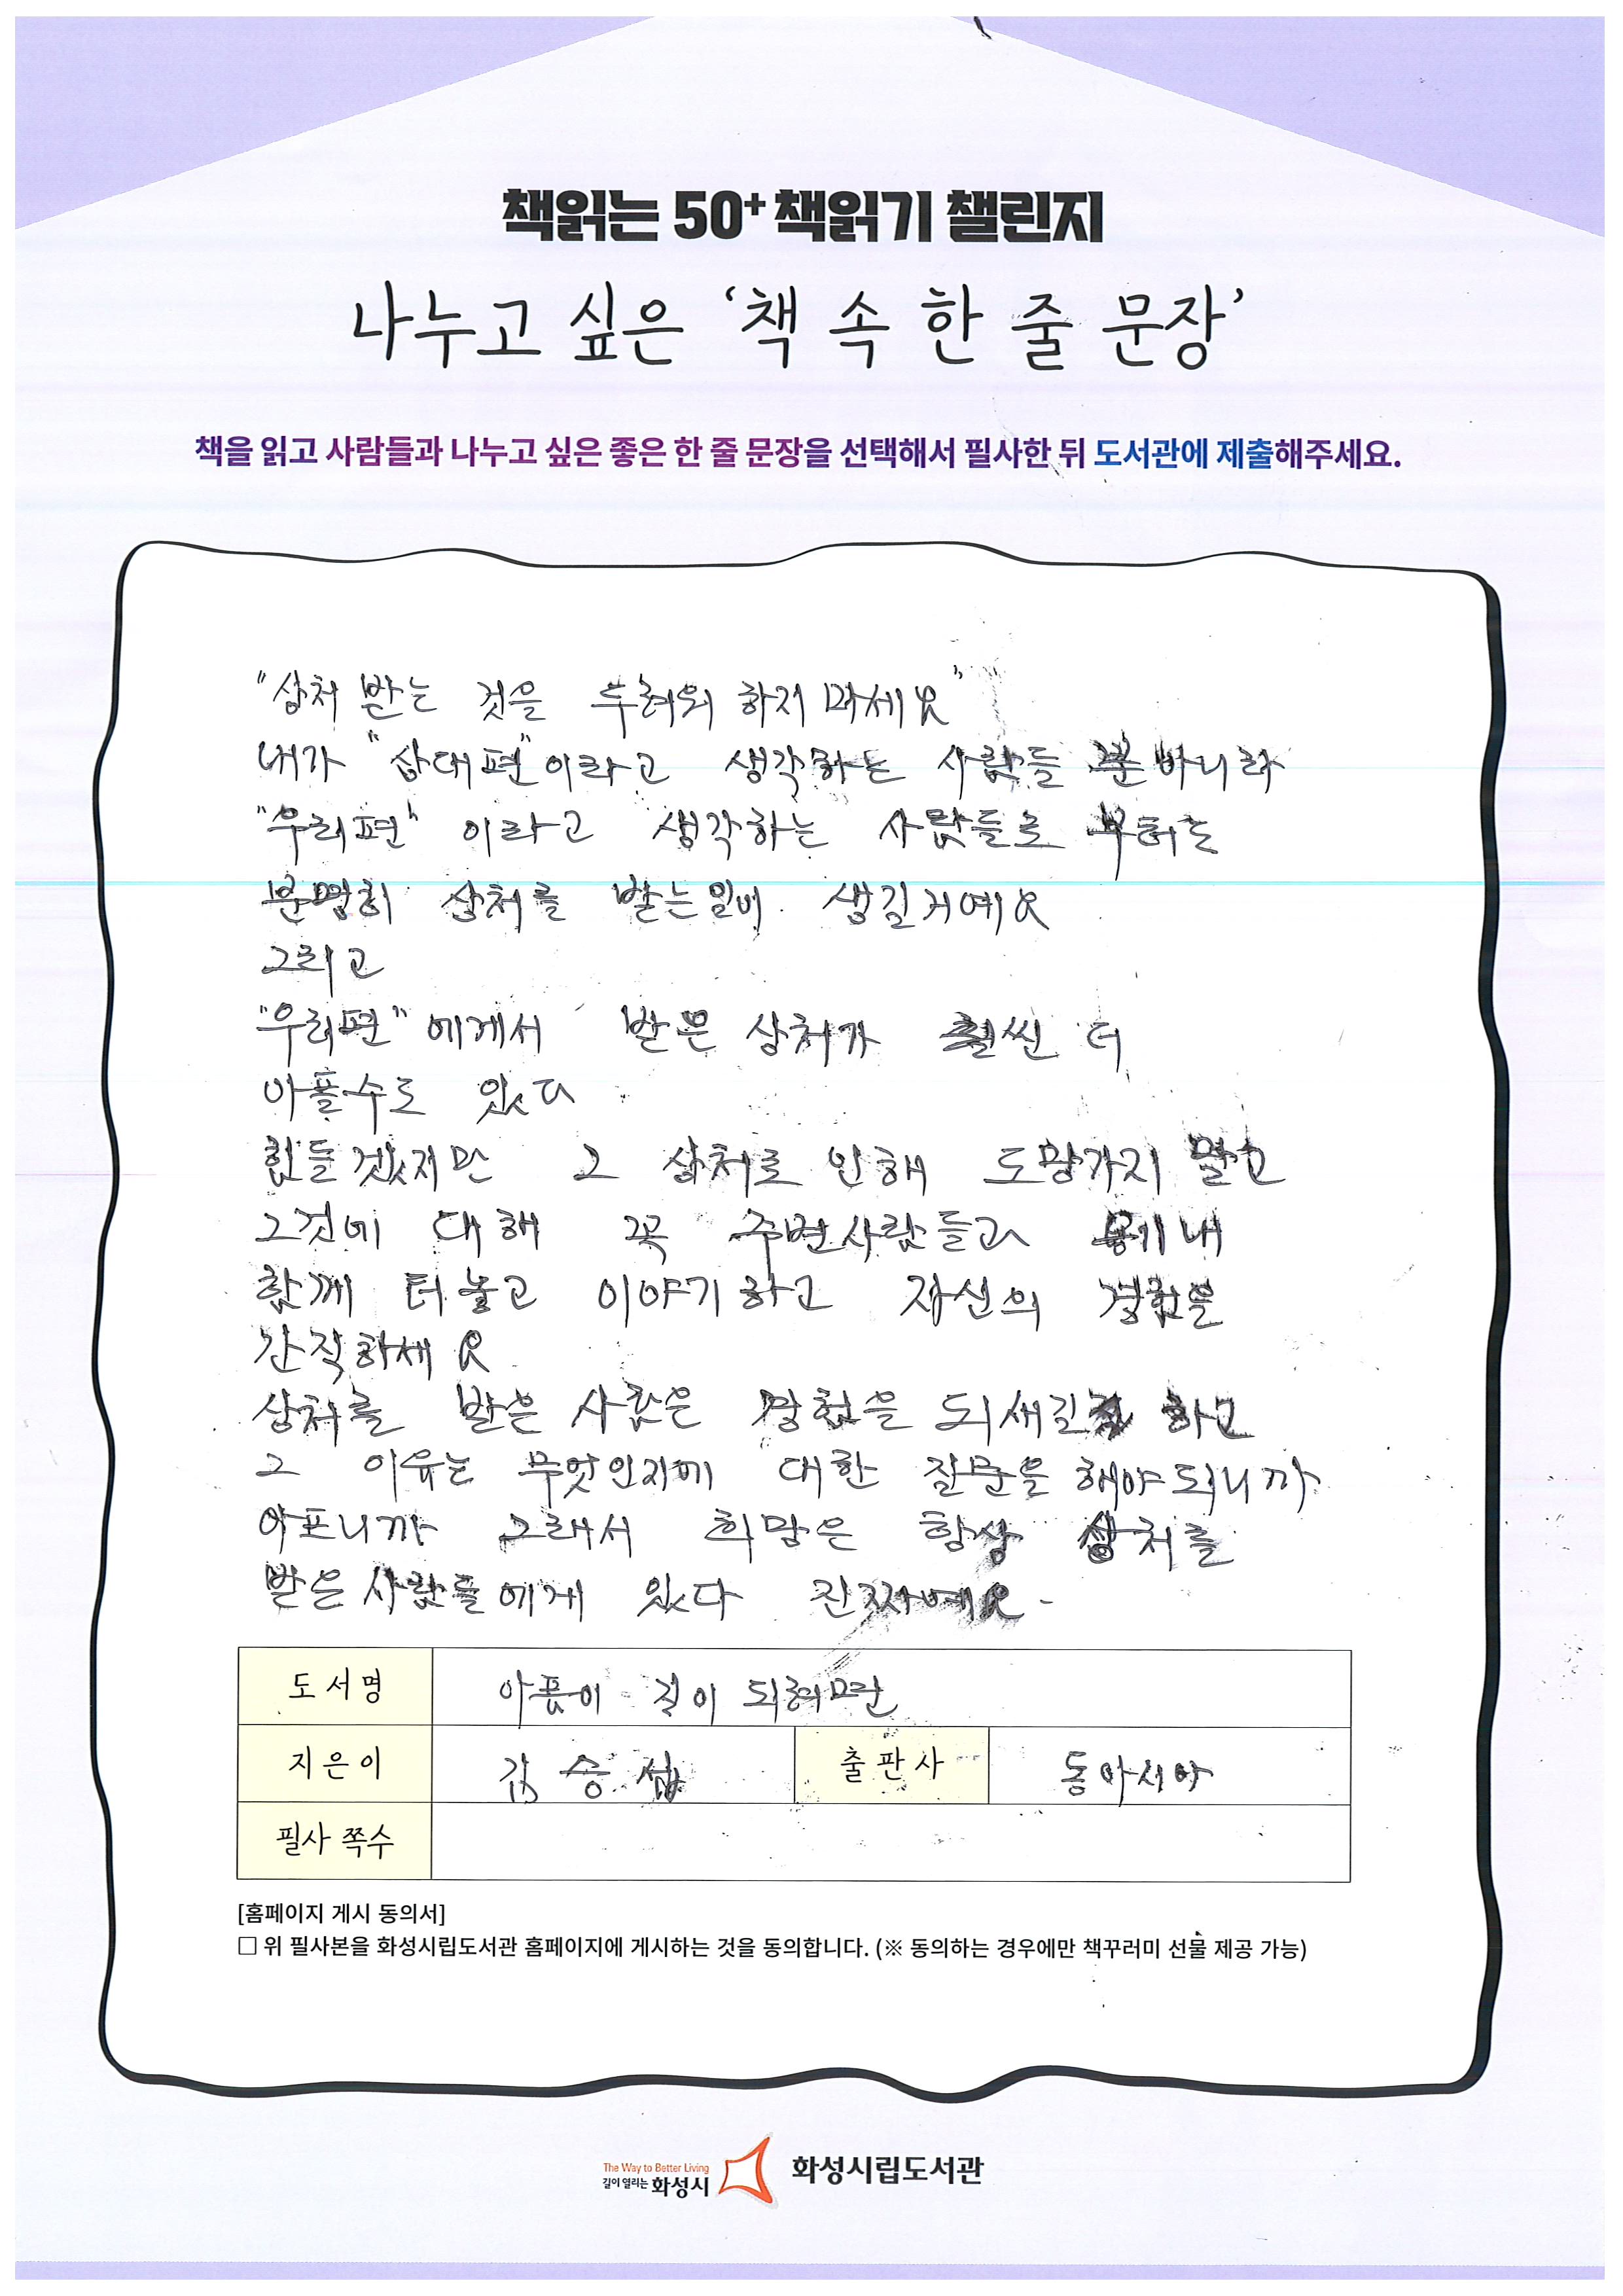 책읽는 50+ 책읽기 챌린지
나누고 싶은 '책 속 한 줄 문장'
책을 읽고 사람들과 나누고 싶은 좋은 한 줄 문장을 선택해서 필사한 뒤 도서관에 제출해주세요.
"상처 받는 것을 두려워 하지 마세요"
내가 "상대편"이라고 생각하는 사람들 뿐 아니라
"우리편" 이라고 생각하는 사람들로 부터도
분명히 상처를 받는일이 생길거예요
그리고
"우리편" 에게서 받은 상처가 훨씬 더
아플수도 있다
힘들겠지만 그 상처로 인해 도망가지 말고
그것에 대해 꼭 주변사람들과
함께 터놓고 이야기하고 자신의 경험을
간직하세요
상처를 받은 사람은 경험을 되새김 하고
그 이유는 무엇인지에 대한 질문을 해야되니까
아프니까 그래서 희망은 항상 상처를
받은 사람들에게 있다 진짜예요.
도서명 아픔이 길이 되려면
지은이 김승섭 출판사 동아시아
필사 쪽수
[홈페이지 게시 동의서]
□ 위 필사본을 화성시립도서관 홈페이지에 게시하는 것을 동의합니다. (※ 동의하는 경우에만 책꾸러미 선물 제공 가능)
The Way to Better Living
길이 열리는 화성시 화성시립도서관